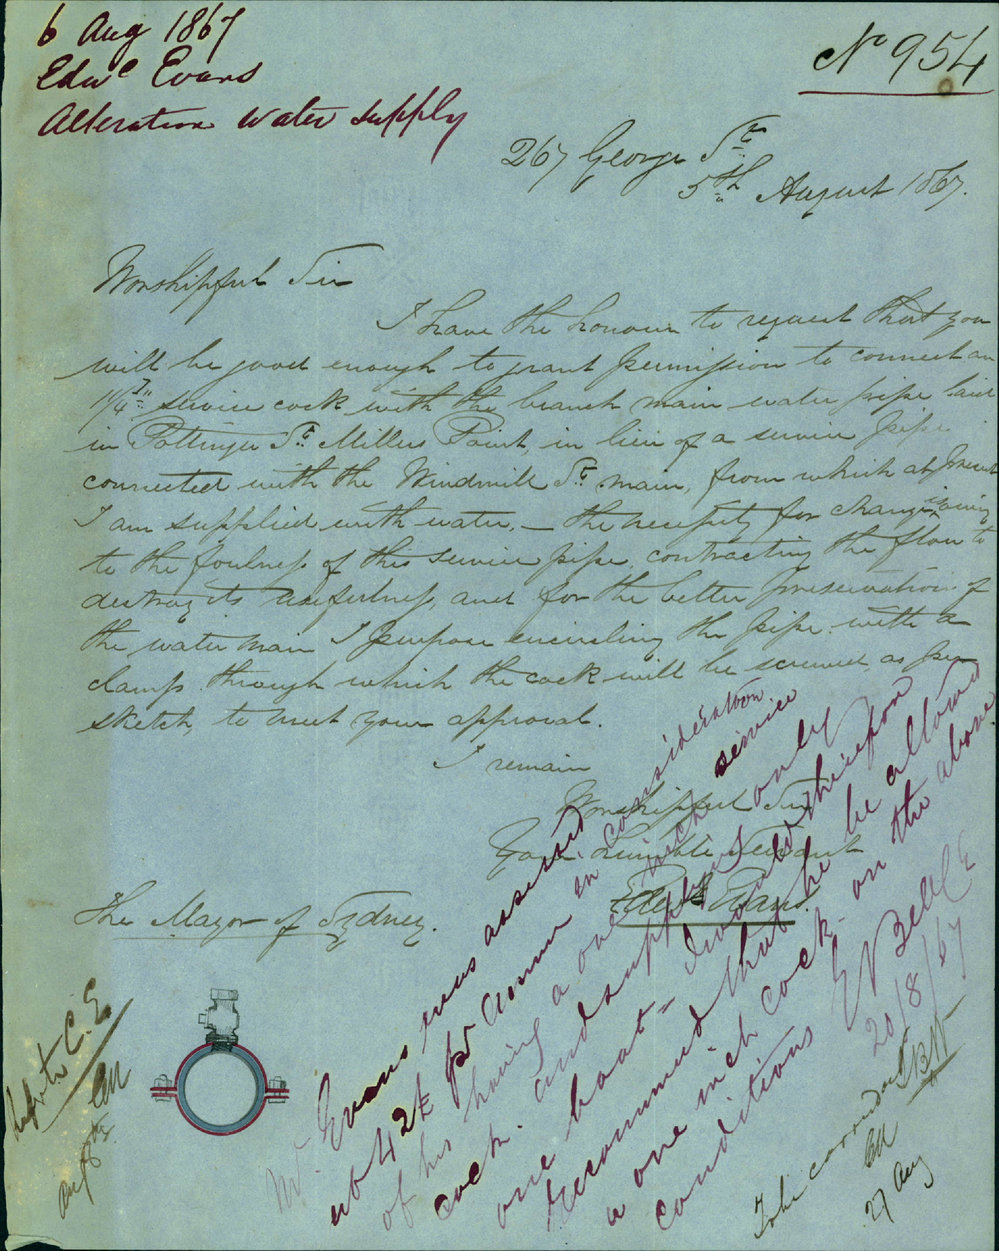 6 Aug 1867
Edwd Evans
Alteration water supply
No 954
267 George St
5th August 1867.
Worshipful Sir
I have the honour to request that you
will be good enough to grant permission to connect an
1 1/4 In service cock with the branch main water pipe laid
in Pottinger St Millers Point, in lieu of a service pipe
connected with the Windmill St main, from which at present
I am supplied with water, — the necessity for changing owing
to the foulness of this service pipe, contracting the flow to
destroy its usefulness, and for the better preservation of
the water main I purpose encircling the pipe with a
clamp through which the cock will be screwed as per
sketch, to meet your approval.
I remain
Worshipful Sir
Your humble Servant
Edwd Evans.
The Mayor of Sydney.
Refer to C. E.
Aug 8th
Mr. Evans was assessed
at 42£ pr annum in consideration
of his having a one inch service
cock. and supplying only
one boat - I would therefore
recommend that he be allowed
a one inch cock on the above
conditions E Bell C E
20/8/67
27 Aug